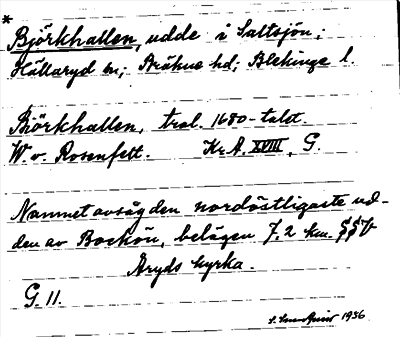 *
Björkhallen, udde i Saltsjön;
Hällaryd sn; Bräkne hd; Blekinge l.
Björkhallen, trol. 1680-talet.
W. v. Rosenfelt. Kr. A. XVIII, G.
Namnet avsåg den nordöstligaste ud-
den av Bockön, belägen 7.2 km. SSV
Åryds kyrka.
G. 11.
1956